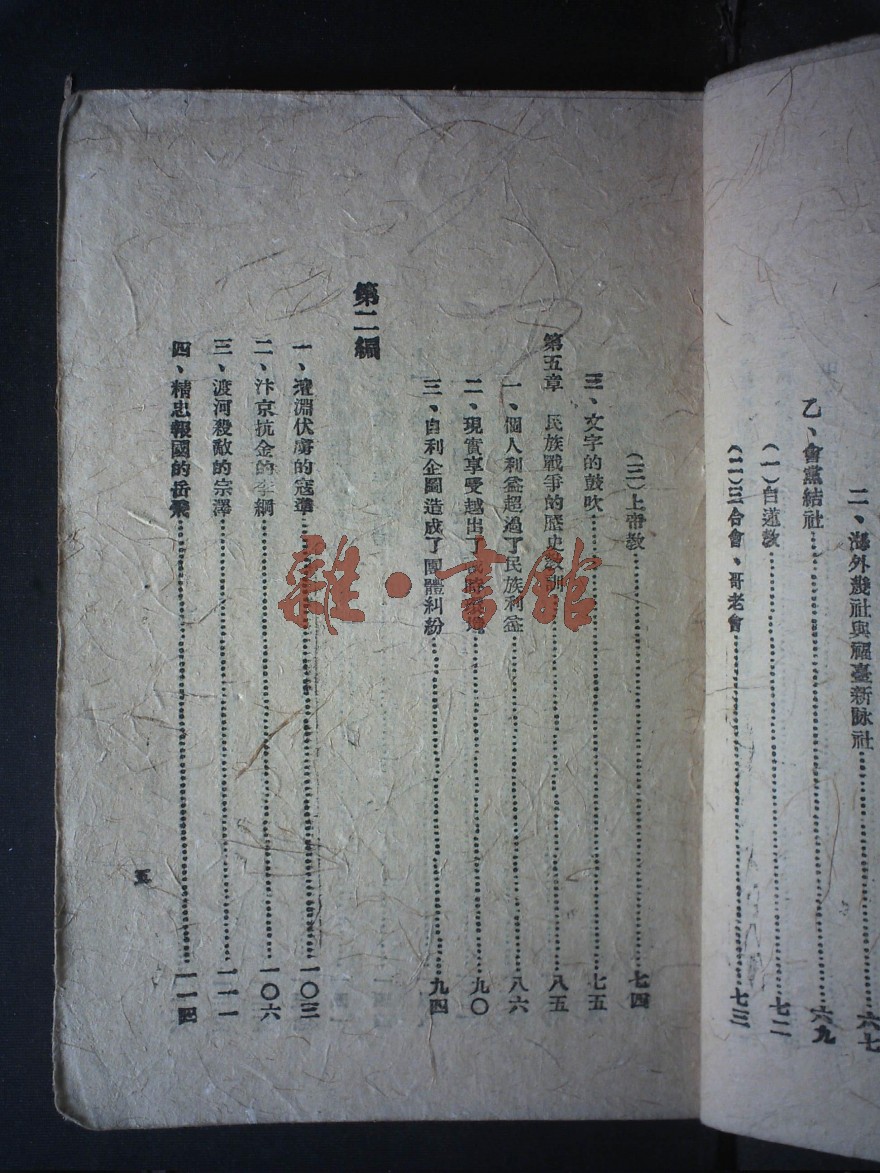 二、海外幾社與福臺新詠社……六七
乙、會黨結社……六九
(一)白蓮教……七二
(二)三合會、哥老會……七三
(三)上帝教……七四
三、文字的鼓吹……七五
第五章 民族戰爭的歷史教訓……八五
一、個人利益超過了民族利益……八六
二、現實享受越出了戰時……九〇
三、自利企圖造成了團體糾紛……九四
第二編
一、澶淵伏虜的寇準……一〇三
二、汴京抗金的李綱……一〇六
三、渡河殺敵的宗澤……一一一
四、精忠報國的岳飛……一一四
五
雜·書館